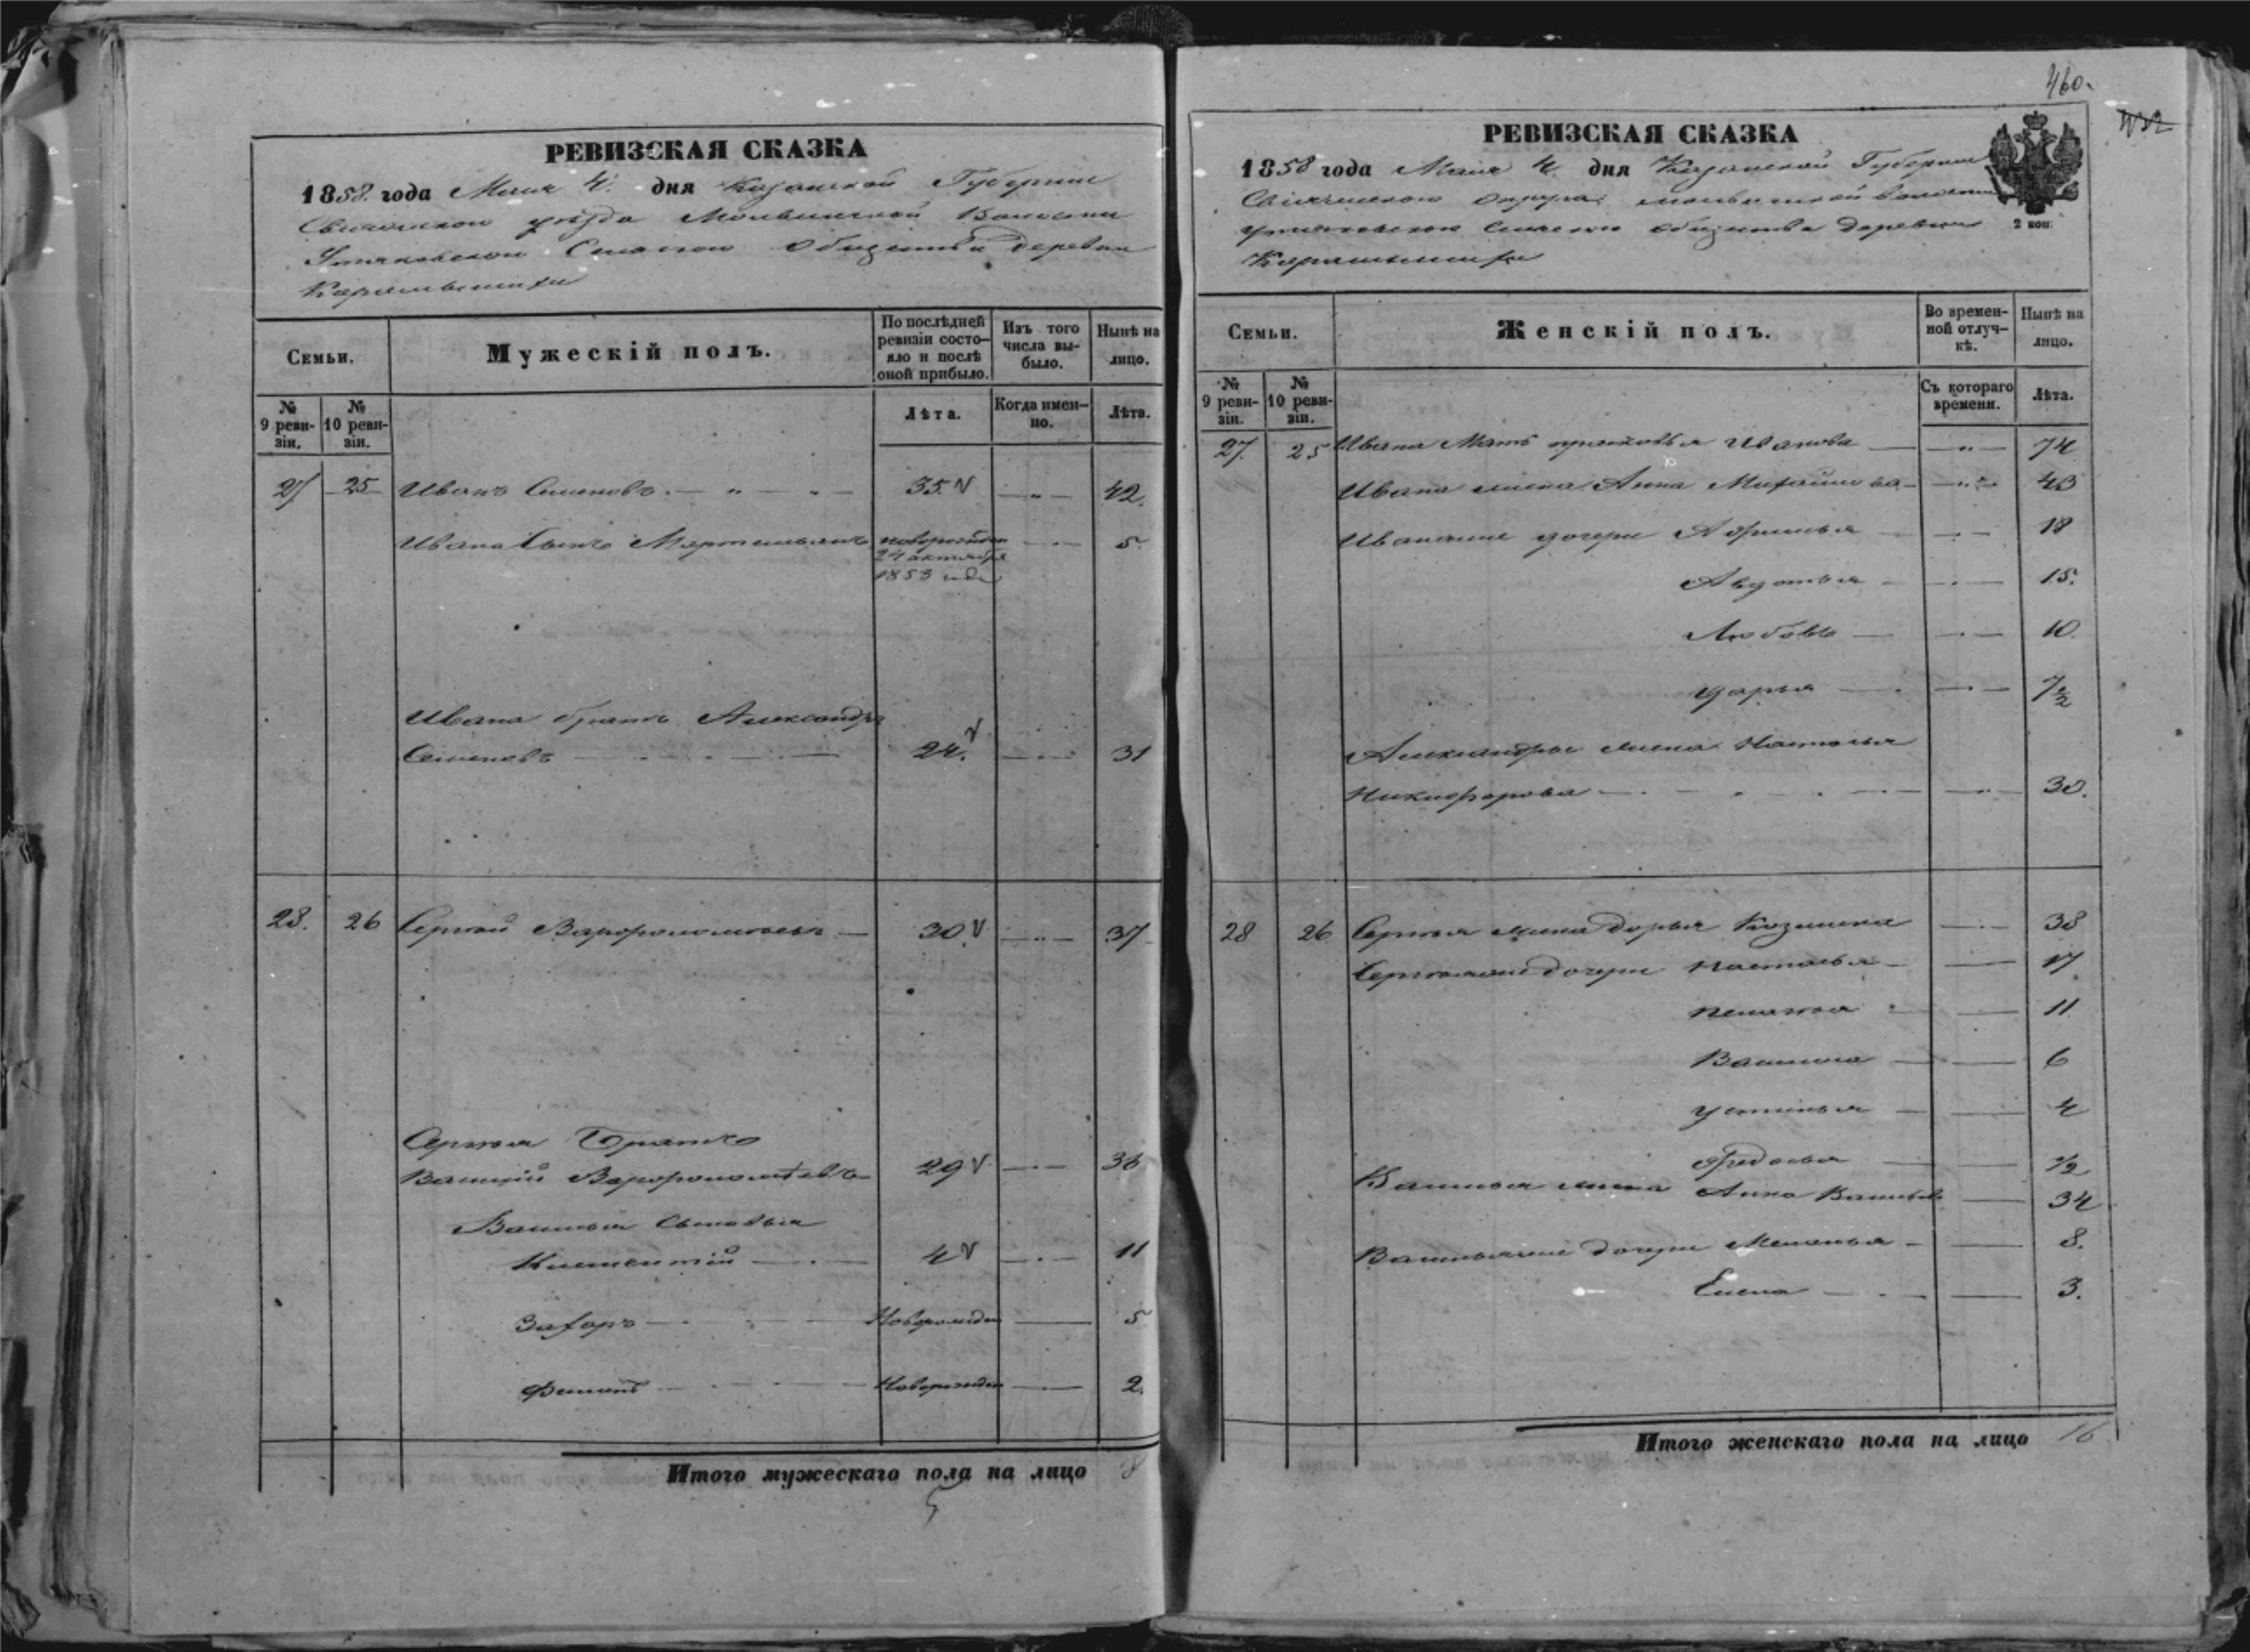 РЕВИЗСКАЯ СКАЗКА
1858 года Мая 4. дня Казанской Губернии
уѣзда Волости
Общества деревни
Семьи.
Мужескій полъ.
По послѣдней ревизіи состояло и послѣ оной прибыло.
Изъ того числа выбыло.
Нынѣ на лицо.
№ 9 ревизіи.
№ 10 ревизіи.
Лѣта.
Когда именно.
Лѣта.
27 25 Иванъ Семеновъ 35 42.
Ивана Сынъ новорожден 5
24 октября
1853 года
Ивана братъ Александръ
Семеновъ 24. 31
28. 26 Сергѣй Варфоломѣевъ 30 37
Сергѣя Братъ
Василій Варфоломѣевъ 29 36
Василья Сыновья
Климентій 4 11
Захаръ Новорожден 5
Новорожден 2.
Итого мужескаго пола на лицо 8
5
460.
РЕВИЗСКАЯ СКАЗКА
1858 года Мая 4. дня Казанской Губерніи
округа волости
общества деревни
2 коп.
Семьи.
Женскій полъ.
Во временной отлучкѣ.
Нынѣ на лицо.
№ 9 ревизіи.
№ 10 ревизіи.
Съ котораго времени.
Лѣта.
27. 25 Ивана Мать Иванова 74
Ивана жена Анна Михайлова 43
Ивановы дочери 18
Авдотья 15.
Любовь 10.
Дарья 7 1/2
Александра жена Настасья
Никифорова 30.
28 26 Сергѣя жена Дарья Козмина 38
дочери Настасья 17
Пелагѣя 11
6
Устинья 4
Федосья 1/2
Василья жена Анна Васильева 34
дочери Меланья 8.
Елена 3.
Итого женскаго пола на лицо 16